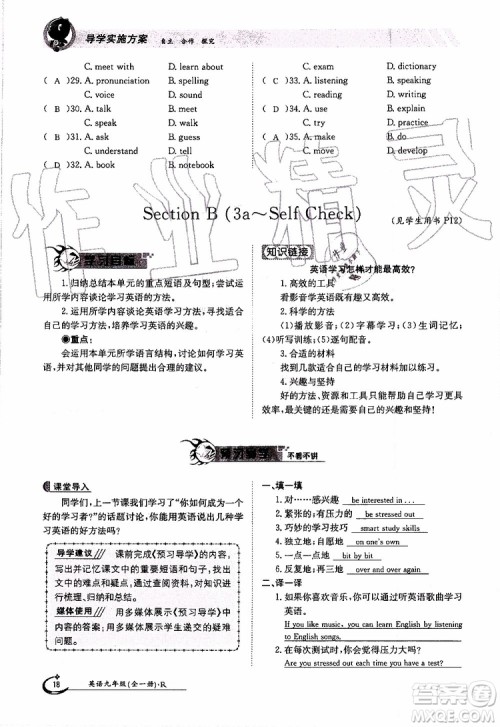 导学实施方案 自主 合作 探究
C. meet with D. learn about
( A )29. A. pronunciation B. sentence
C. voice D. sound
( B )30. A. talk B. meet
C. speak D. sit
( B )31. A. ask B. guess
C. understand D. tell
( D )32. A. book B. notebook
C. exam D. dictionary
( A )33. A. listening B. speaking
C. reading D. writing
( B )34. A. use B. explain
C. try D. practice
( A )35. A. make B. do
C. move D. develop
Section B (3a～Self Check)
(见学生用书 P12)
学习目标
1. 归纳总结本单元的重点短语及句型；尝试运用所学内容谈论学习英语的方法。
2. 运用所学内容谈论英语学习方法，找到适合自己的学习方法，培养学习英语的兴趣。
◆重点：
会运用本单元所学语言结构，谈论如何学习英语，并对其他同学的英语学习给出指导。
知识链接
英语学习怎样才能最高效?
1. 高效的工具
看影音学英语是最高效的方法。
2. 科学的方法
(1)播放影音；(2)字幕学习；(3)生词记忆；
(4)听写训练；(5)逐句配音。
3. 合适的材料
找几部自己喜欢的电影或电视剧。
4. 兴趣与坚持
好的方法、资源和工具只能帮助我们提高效率，更重要的还是自己的兴趣和坚持。
预习导学 不看不讲
课堂导入
同学们，上一节课我们学习了“如何成为一个好的学习者?”的话题讨论，那你们都有哪些学习英语的好方法吗?
导学建议 课前完成《预习导学》的内容，写出并记忆课文中的重要短语和句子，提出自己的难点和疑点；通过查阅资料，对知识进行梳理、归纳和总结。
媒体使用 用多媒体展示《预习导学》的内容和答案；用多媒体展示学生提交的疑难问题。
一、填一填
1. 对……感兴趣 be interested in ...
2. 紧张的；有压力的 stressed out
3. 巧妙的学习技巧 smart study skills
4. 独立地；单独地 on one's own
5. 一点一点地 bit by bit
6. 反复地；再三地 over and over again
二、译一译
1. 如果你喜欢音乐，你可以通过听英语歌曲来学习英语。
If you like music, you can learn English by listening to English songs.
2. 在每次测试时，你们都感到有压力吗?
Are you stressed out each time you have a test?
18 英语九年级(全一册)·R